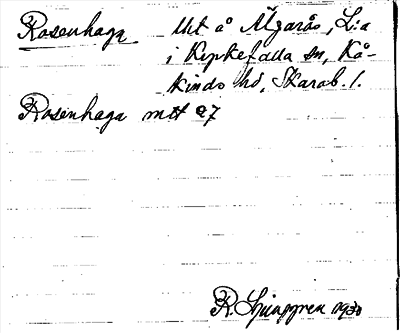 Rosenhaga Uts å Älgarås, L:a
i Kyrkefalla sn, Kå-
kinds hd, Skarab. l.
Rosenhaga mtt 97
R. Ljunggren 1930